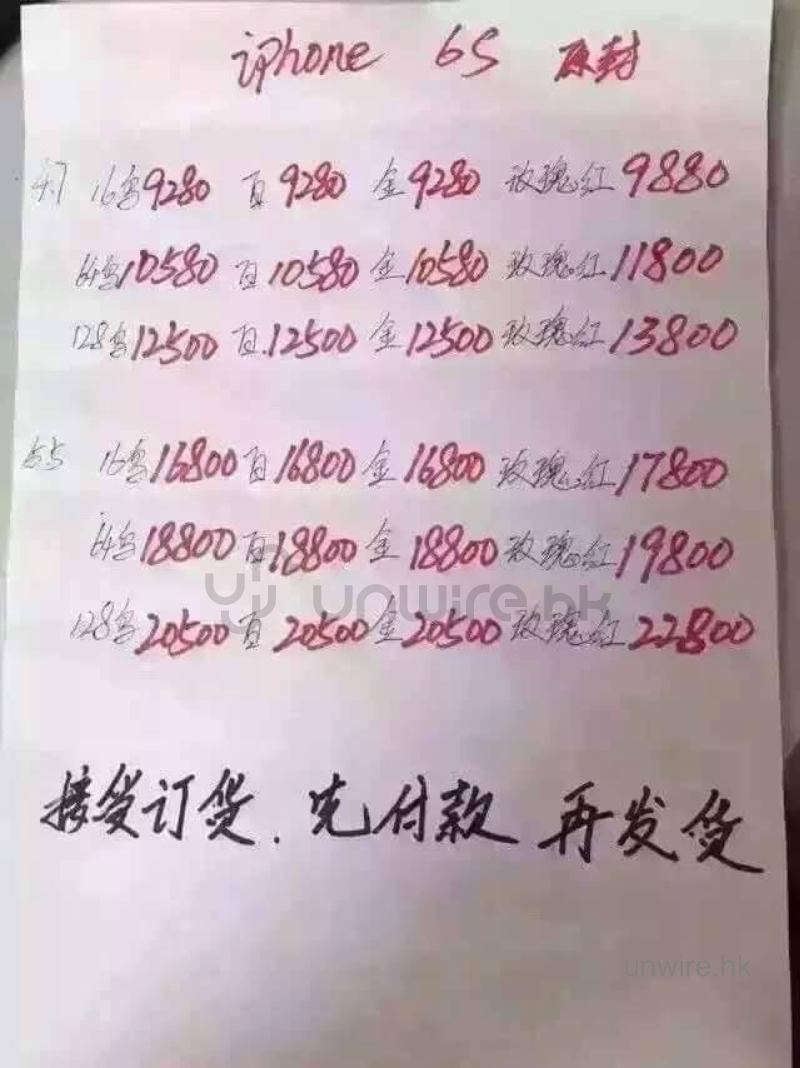 iphone 6S 原封
4.7 16名9280 百9280 金9280 玫瑰红9880
64名10580 百10580 金10580 玫瑰红11800
128名12500 百.12500 金12500 玫瑰红13800
5.5 16名16800 百16800 金16800 玫瑰红17800
64名18800 百18800 金18800 玫瑰红19800
unwire.hk
128名20500 百20500 金20500 玫瑰红22800
接受订货.先付款 再发货
unwire.hk